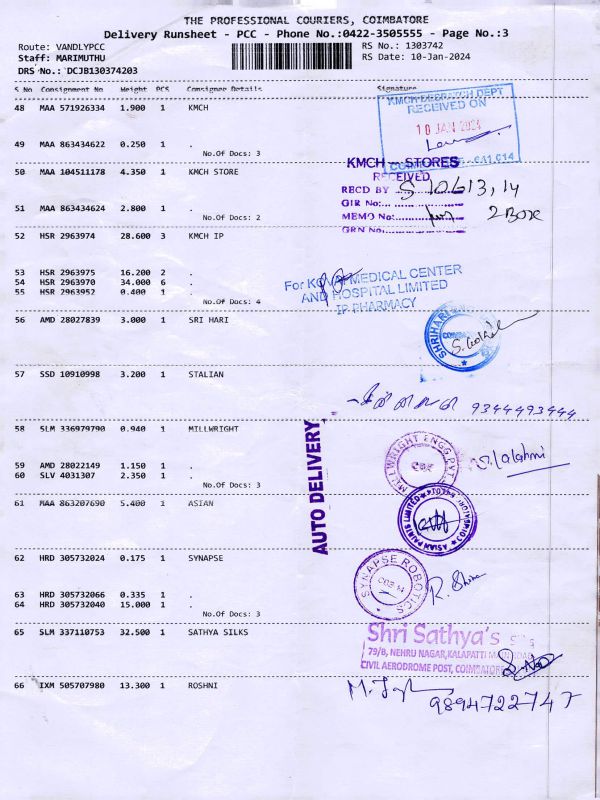 THE PROFESSIONAL COURIERS, COIMBATORE
Delivery Runsheet - PCC - Phone No.:0422-3505555 - Page No.:3
Route: VANDLYPCC
RS No.: 1303742
Staff: MARIMUTHU
RS Date: 10-Jan-2024
DRS No.: DCJB130374203
S No Consignment No Weight PCS Consignee Details Signature
48 MAA 571926334 1.900 1 KMCH
KMCH DESPATCH DEPT
RECEIVED ON
10 JAN 2024
49 MAA 863434622 0.250 1 .
No.Of Docs: 3
KMCH - STORES
50 MAA 104511178 4.350 1 KMCH STORE
RECEIVED
RECD BY
GIR No:
51 MAA 863434624 2.800 1 .
No.Of Docs: 2
MEMO No:
2 Box
GRN No:
52 HSR 2963974 28.600 3 KMCH IP
53 HSR 2963975 16.200 2 .
54 HSR 2963970 34.000 6 .
55 HSR 2963952 0.400 1 .
No.Of Docs: 4
For KOVAI MEDICAL CENTER
AND HOSPITAL LIMITED
IP PHARMACY
56 AMD 28027839 3.000 1 SRI HARI
SHRIHARI
57 SSD 10910998 3.200 1 STALIAN
9344493444
58 SLM 336979790 0.940 1 MILLWRIGHT
AUTO DELIVERY
MILLWRIGHT ENGG PVT
CBE
59 AMD 28022149 1.150 1 .
60 SLV 4031307 2.350 1 .
No.Of Docs: 3
61 MAA 863207690 5.400 1 ASIAN
ASIAN PAINTS LIMITED
62 HRD 305732024 0.175 1 SYNAPSE
SYNAPSE ROBOTICS
COB 14
63 HRD 305732066 0.335 1 .
64 HRD 305732040 15.000 1 .
No.Of Docs: 3
65 SLM 337110753 32.500 1 SATHYA SILKS
Shri Sathya's
79/B, NEHRU NAGAR, KALAPATTI MAIN ROAD
CIVIL AERODROME POST, COIMBATORE
66 IXM 505707980 13.300 1 ROSHNI
9894722747